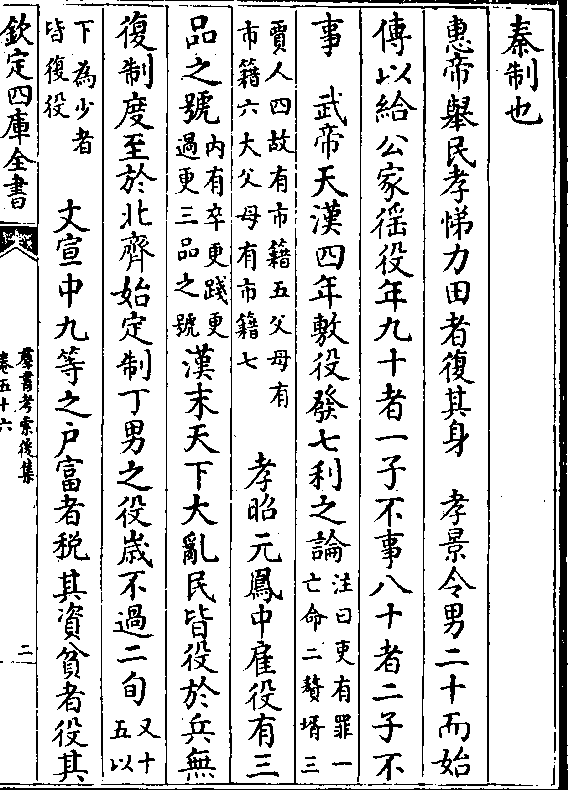 秦制也
惠帝舉民孝悌力田者復其身　孝景令男二十而始
傅以給公家徭役年九十者一子不事八十者二子不
事　武帝天漢四年敷役發七利之論注曰吏有罪一亡命二贅壻三
賈人四故有市籍五父母有市籍六大父母有市籍七　孝昭元鳳中雇役有三
品之號内有卒更踐更過更三品之號漢末天下大亂民皆役於兵無
復制度至於北齊始定制丁男之役嵗不過二旬又十五以
下為少者皆復役　文宣中九等之户富者税其資貧者役其
欽定四庫全書
羣書考索後集
卷五十六
二